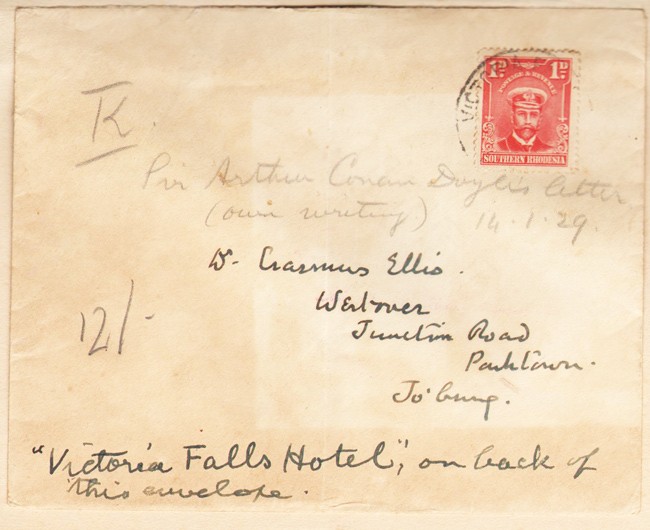 1D 1D
POSTAGE & REVENUE
SOUTHERN RHODESIA
K.
Sir Arthur Conan Doyle's letter
(own writing) 14.1.29.
Dr. Erasmus Ellis.
Westover
Junction Road
Parktown.
Jo'burg.
12/-
"Victoria Falls Hotel", on back of
this envelope.